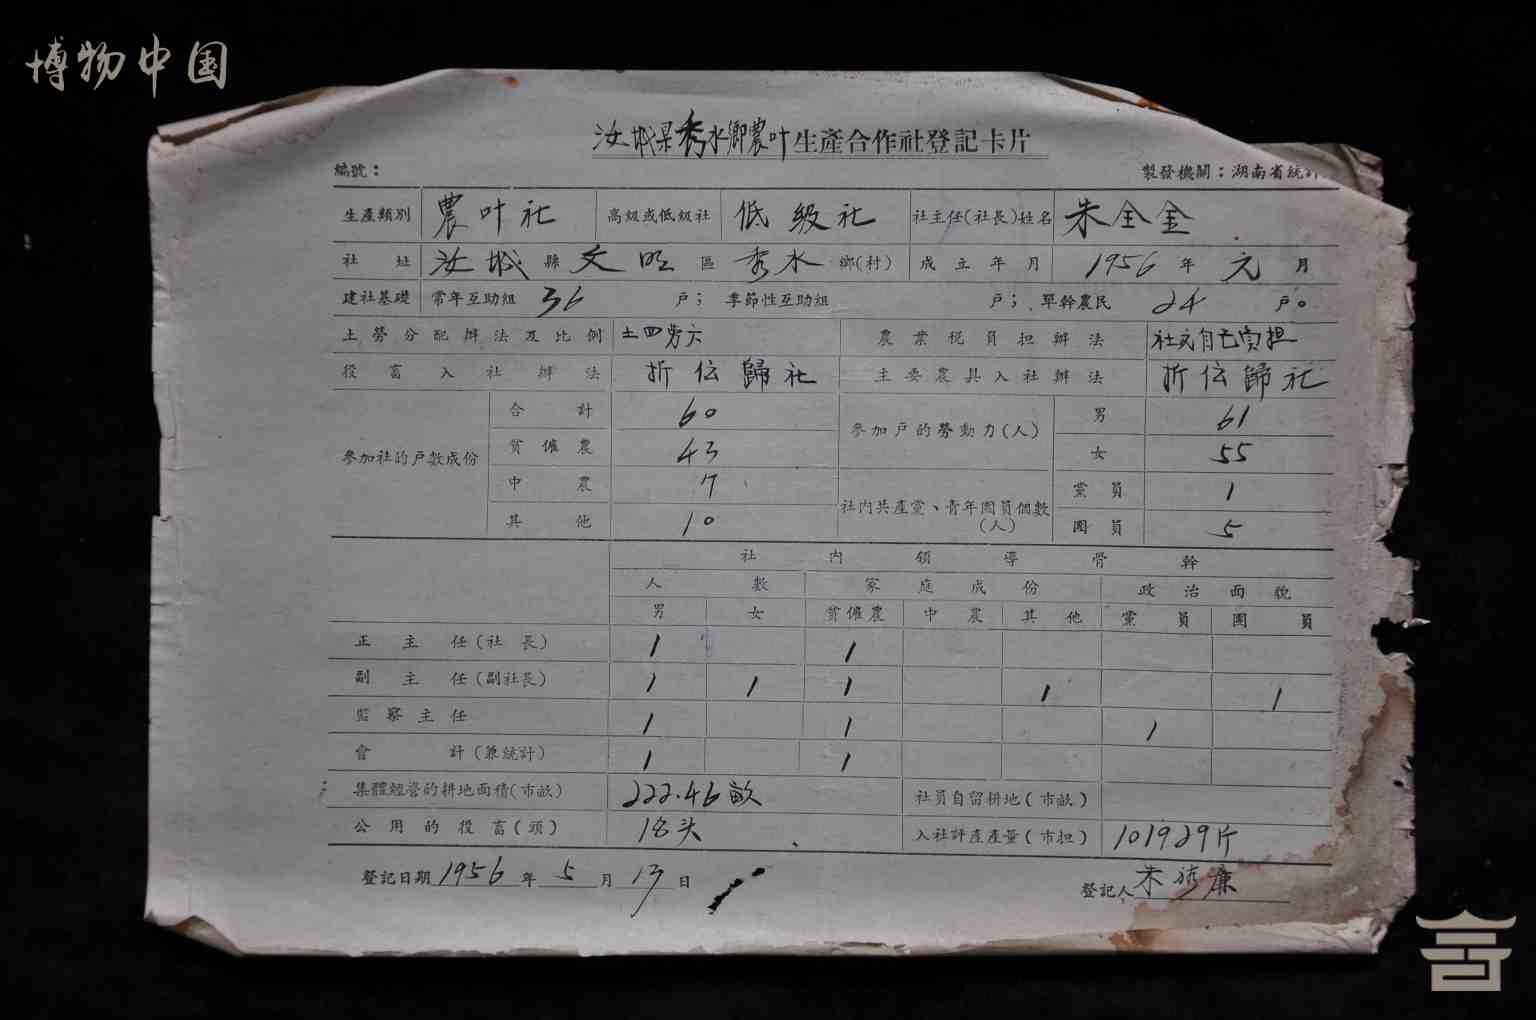 博物中国
汝城县秀水鄉農叶生產合作社登記卡片
編號： 製發機關：湖南省統計
生產類別 農叶社 高級或低級社 低級社 社主任(社長)姓名 朱全金
社址 汝城縣文明區秀水鄉(村) 成立年月 1956年元月
建社基礎 常年互助組 36 戶； 季節性互助組 戶； 單幹農民 24 戶。
土勞分配辦法及比例 土四劳六 農業税負担辦法 社文自己負担
役畜入社辦法 折伝歸社 主要農具入社辦法 折伝歸社
參加社的戶數成份 合計 60 參加戶的勞動力(人) 男 61
貧僱農 43 女 55
中農 7 社内共產黨、青年團員個數(人) 黨員 1
其他 10 團員 5
社内領導骨幹
人數 家庭成份 政治面貌
男 女 貧僱農 中農 其他 黨員 團員
正主任(社長) 1 1
副主任(副社長) 1 1 1 1 1
監察主任 1 1 1
會計(兼統計) 1 1
集體經營的耕地面積(市畝) 222.46畝 社員自留耕地(市畝)
公用的役畜(頭) 18头 入社評產產量(市担) 101929斤
登記日期 1956年5月13日 登記人 朱 廉